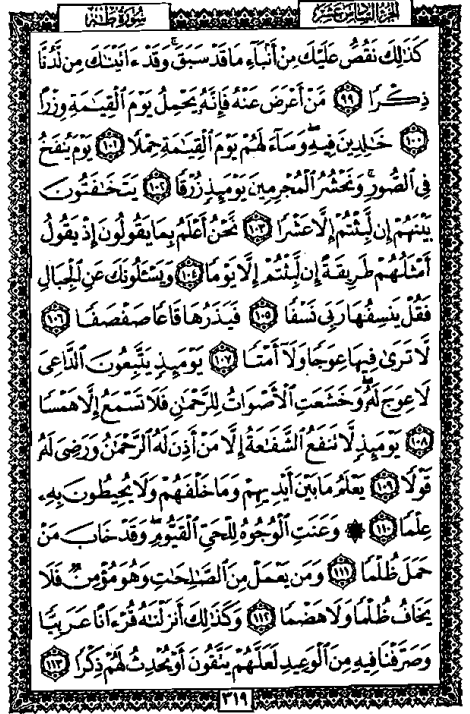 الجزء السادس عشر
سورة طه
كَذَٰلِكَ نَقُصُّ عَلَيْكَ مِنْ أَنۢبَآءِ مَا قَدْ سَبَقَ ۚ وَقَدْ ءَاتَيْنَٰكَ مِن لَّدُنَّا
ذِكْرًا ٩٩ مَّنْ أَعْرَضَ عَنْهُ فَإِنَّهُۥ يَحْمِلُ يَوْمَ ٱلْقِيَٰمَةِ وِزْرًا
١٠٠ خَٰلِدِينَ فِيهِ ۖ وَسَآءَ لَهُمْ يَوْمَ ٱلْقِيَٰمَةِ حِمْلًا ١٠١ يَوْمَ يُنفَخُ
فِى ٱلصُّورِ ۚ وَنَحْشُرُ ٱلْمُجْرِمِينَ يَوْمَئِذٍ زُرْقًا ١٠٢ يَتَخَٰفَتُونَ
بَيْنَهُمْ إِن لَّبِثْتُمْ إِلَّا عَشْرًا ١٠٣ نَّحْنُ أَعْلَمُ بِمَا يَقُولُونَ إِذْ يَقُولُ
أَمْثَلُهُمْ طَرِيقَةً إِن لَّبِثْتُمْ إِلَّا يَوْمًا ١٠٤ وَيَسْـَٔلُونَكَ عَنِ ٱلْجِبَالِ
فَقُلْ يَنسِفُهَا رَبِّى نَسْفًا ١٠٥ فَيَذَرُهَا قَاعًا صَفْصَفًا ١٠٦
لَّا تَرَىٰ فِيهَا عِوَجًا وَلَآ أَمْتًا ١٠٧ يَوْمَئِذٍ يَتَّبِعُونَ ٱلدَّاعِىَ
لَا عِوَجَ لَهُۥ ۖ وَخَشَعَتِ ٱلْأَصْوَاتُ لِلرَّحْمَٰنِ فَلَا تَسْمَعُ إِلَّا هَمْسًا
١٠٨ يَوْمَئِذٍ لَّا تَنفَعُ ٱلشَّفَٰعَةُ إِلَّا مَنْ أَذِنَ لَهُ ٱلرَّحْمَٰنُ وَرَضِىَ لَهُۥ
قَوْلًا ١٠٩ يَعْلَمُ مَا بَيْنَ أَيْدِيهِمْ وَمَا خَلْفَهُمْ وَلَا يُحِيطُونَ بِهِۦ
عِلْمًا ١١٠ ۞ وَعَنَتِ ٱلْوُجُوهُ لِلْحَىِّ ٱلْقَيُّومِ ۖ وَقَدْ خَابَ مَنْ
حَمَلَ ظُلْمًا ١١١ وَمَن يَعْمَلْ مِنَ ٱلصَّٰلِحَٰتِ وَهُوَ مُؤْمِنٌ فَلَا
يَخَافُ ظُلْمًا وَلَا هَضْمًا ١١٢ وَكَذَٰلِكَ أَنزَلْنَٰهُ قُرْءَانًا عَرَبِيًّا
وَصَرَّفْنَا فِيهِ مِنَ ٱلْوَعِيدِ لَعَلَّهُمْ يَتَّقُونَ أَوْ يُحْدِثُ لَهُمْ ذِكْرًا ١١٣
٣١٩